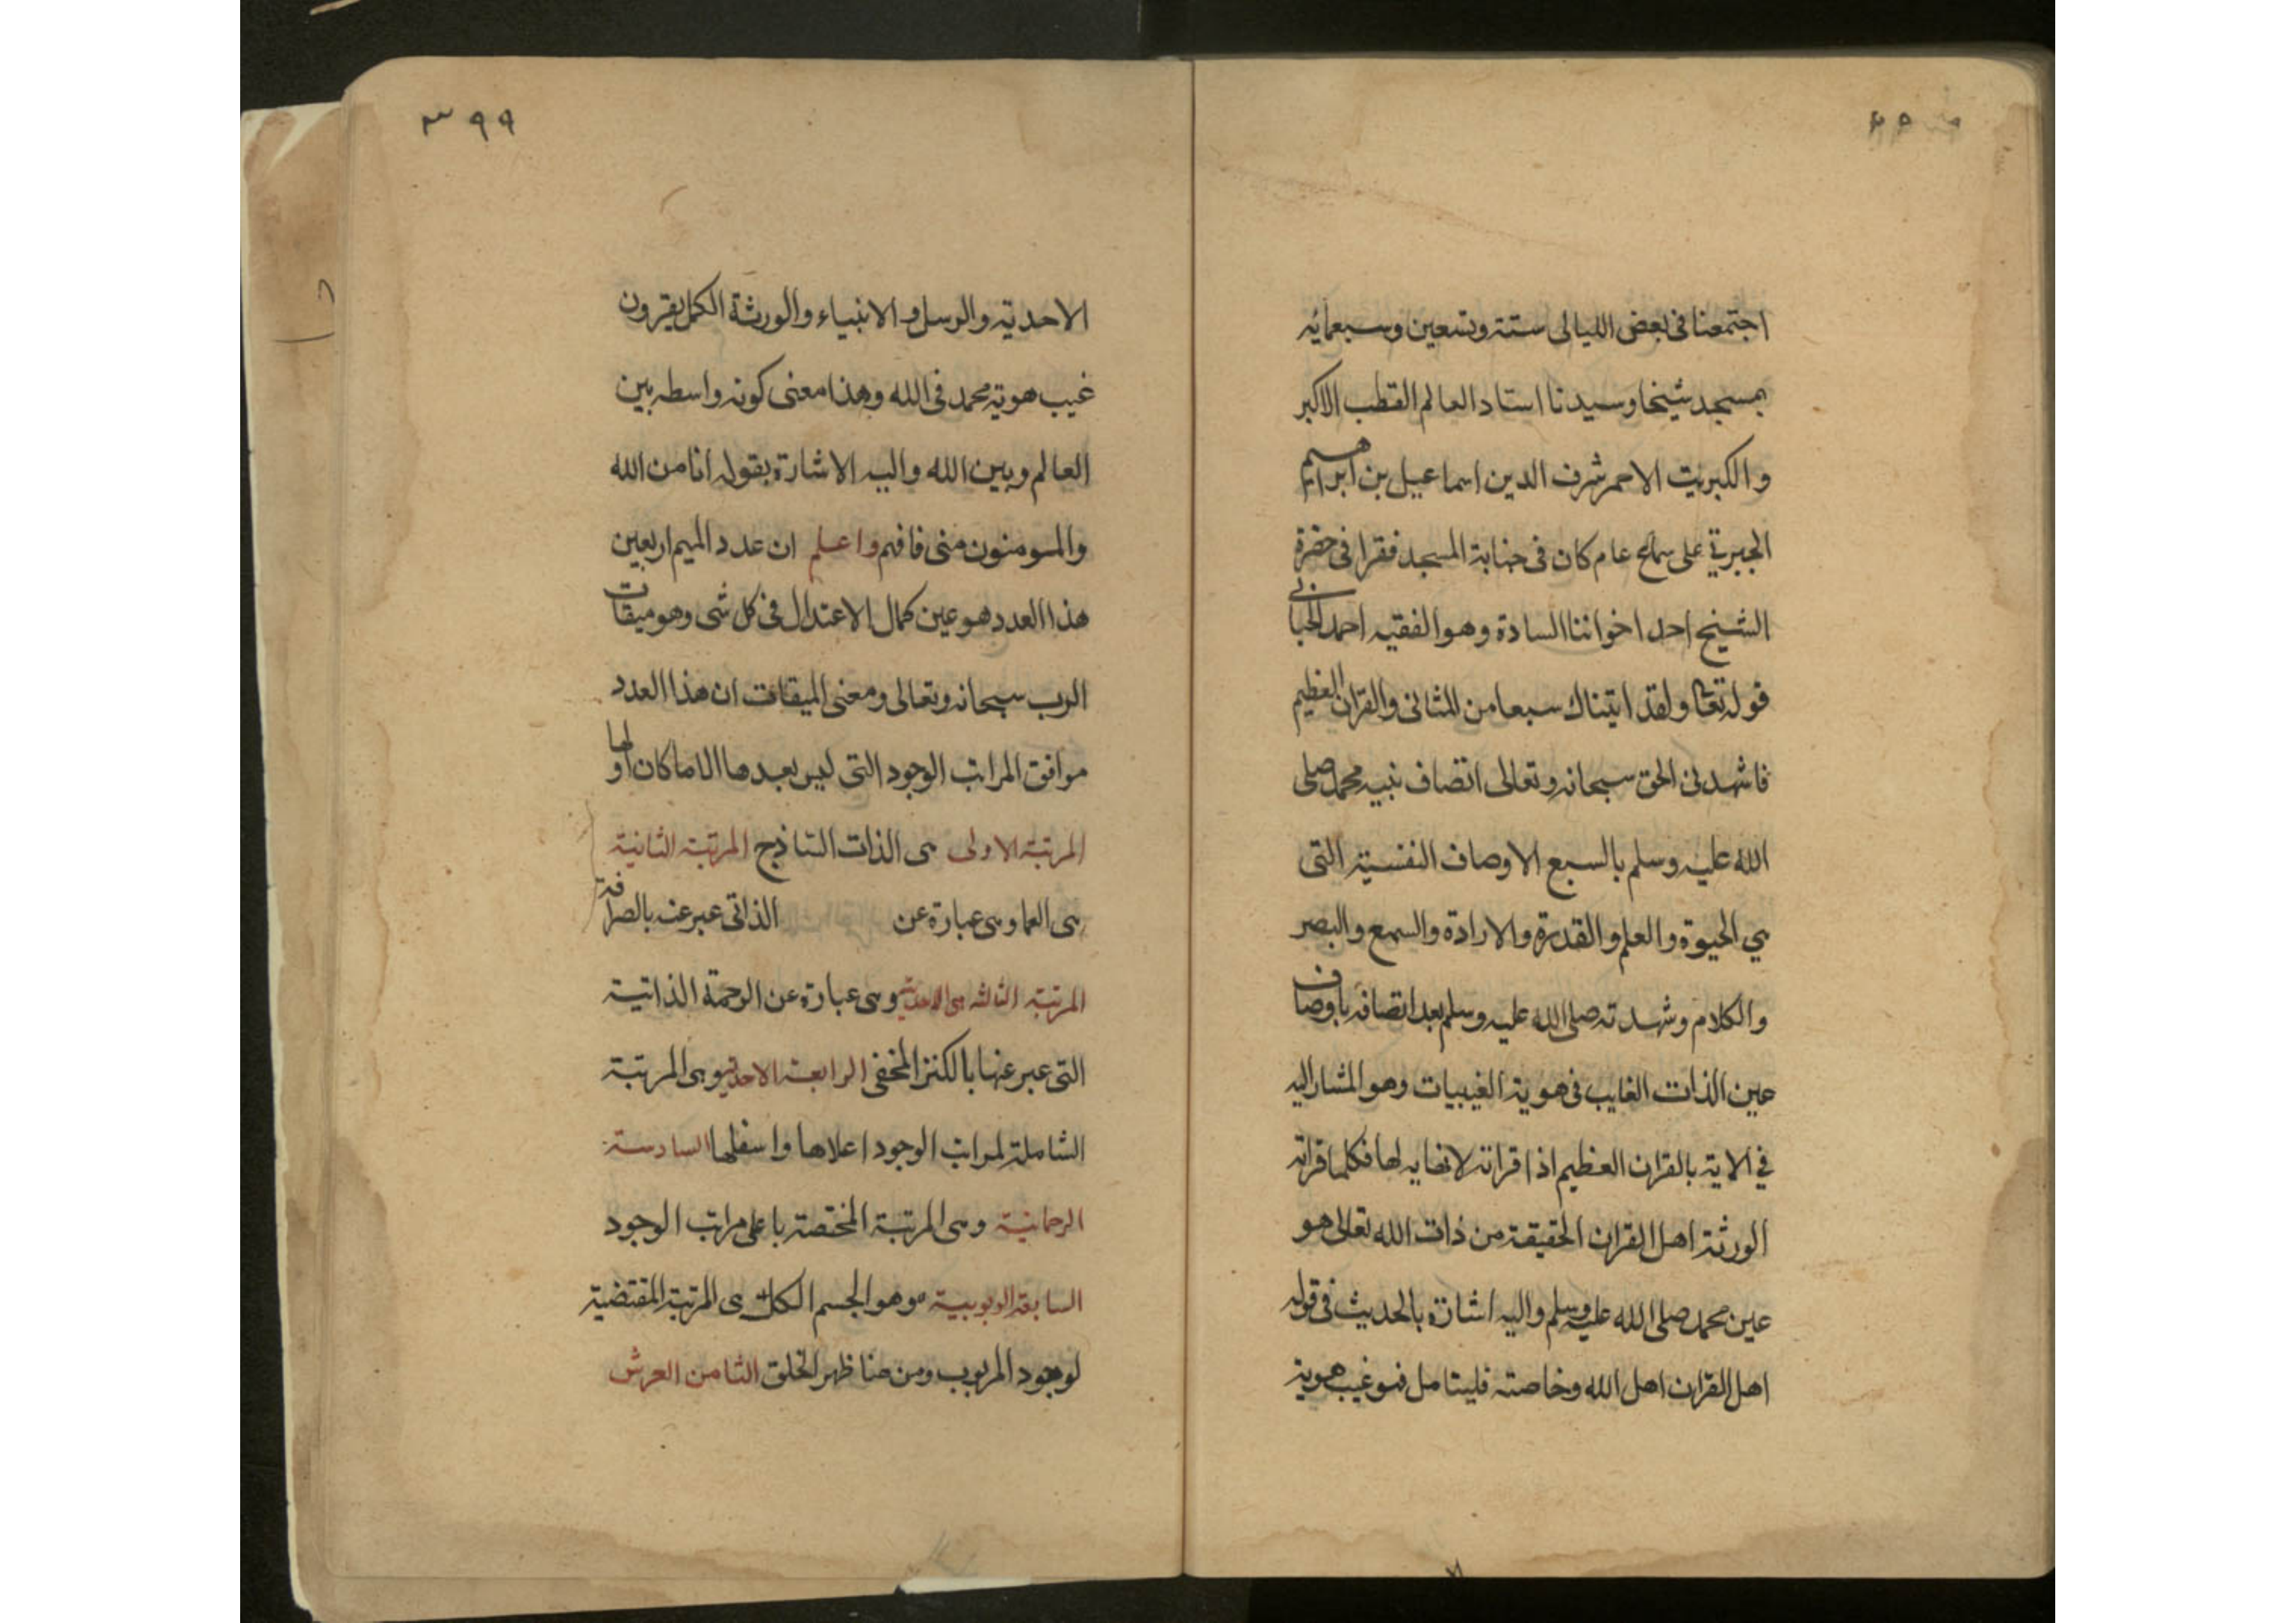 اجتمعنا فى بعض الليالى ستة وتسعين وسبعمائه
بمسجد شيخنا وسيدنا استاد العالم القطب الاكبر
والكبريت الاحمر شرف الدين اسماعيل بن ابراهيم
الجبرتي على سماع عام كان فى جنابة المسجد فقرا فى حضرة
الشيخ احد اخواننا السادة وهو الفقيه احمد الحبابى
قوله تعا ولقد اتيناك سبعا من المثانى والقران العظيم
فاشهدنى الحق سبحانه وتعالى اتصاف نبيه محمد صلى
الله عليه وسلم بالسبع الاوصاف النفسية التى
هي الحيوة والعلم والقدرة والارادة والسمع والبصر
والكلام وشهدته صلى الله عليه وسلم بعد اتصافه باوصاف
عين الذات الغايب فى هوية الغيبيات وهو المشار اليه
في الاية بالقران العظيم اذ اقراته لانهايه لها فكلما قراته
الورثة اهل القران الحقيقة من ذات الله تعالى هو
عين محمد صلى الله عليه وسلم واليه اشارة بالحديث فى قوله
اهل القران اهل الله وخاصته فليتامل فهو غيب هوية
٣٩٩
الاحدية والرسل والانبياء والورثة الكمل يقرون
غيب هوية محمد فى الله وهذا معنى كونه واسطه بين
العالم وبين الله واليه الاشارة بقوله انا من الله
والمومنون منى فافهم واعلم ان عدد الميم اربعين
هذا العدد هو عين كمال الاعتدال فى كل شى وهو ميقات
الرب سبحانه وتعالى ومعنى الميقات ان هذا العدد
موافق المراتب الوجود التى ليس بعدها الا ما كان اولها
المرتبة الاولى هى الذات الساذج المرتبة الثانية
هى العما وهى عبارة عن الذاتى عبر عنه بالصرافة
المرتبة الثالثه هى الاحدية وهى عبارة عن الرحمة الذاتية
التى عبر عنها بالكنز المخفى الرابعة الاحدية وهى المرتبة
الشاملة لمراتب الوجود اعلاها واسفلها السادسة
الرحمانية وهى المرتبة المختصة باعلى مراتب الوجود
السابعة الربوبية وهو الجسم الكل هى المرتبة المقتضية
لوجود المربوب ومن هنا ظهر الخلق الثامن العرش